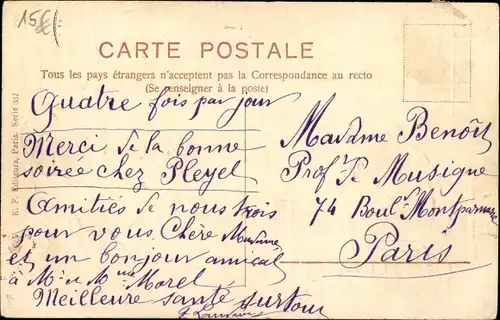 15€
CARTE POSTALE
Tous les pays étrangers n'acceptent pas la Correspondance au recto
(Se renseigner à la poste)
K. F. Editeurs, Paris. Serie 337
Quatre fois par jour
Merci de la bonne
soirée chez Pleyel
Amitiés de nous trois
pour vous Chère Madame
et un bonjour amical
à Mr et Mme Morel
Meilleure santé surtout
Madame Benoît
Profr de Musique
74 Boul. Montparnasse
Paris